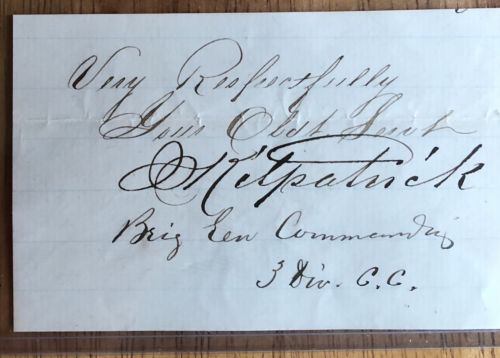 Very Respectfully
Your Obdt Servt
JKilpatrick
Brig Gen Commandig
3 Div. C.C.